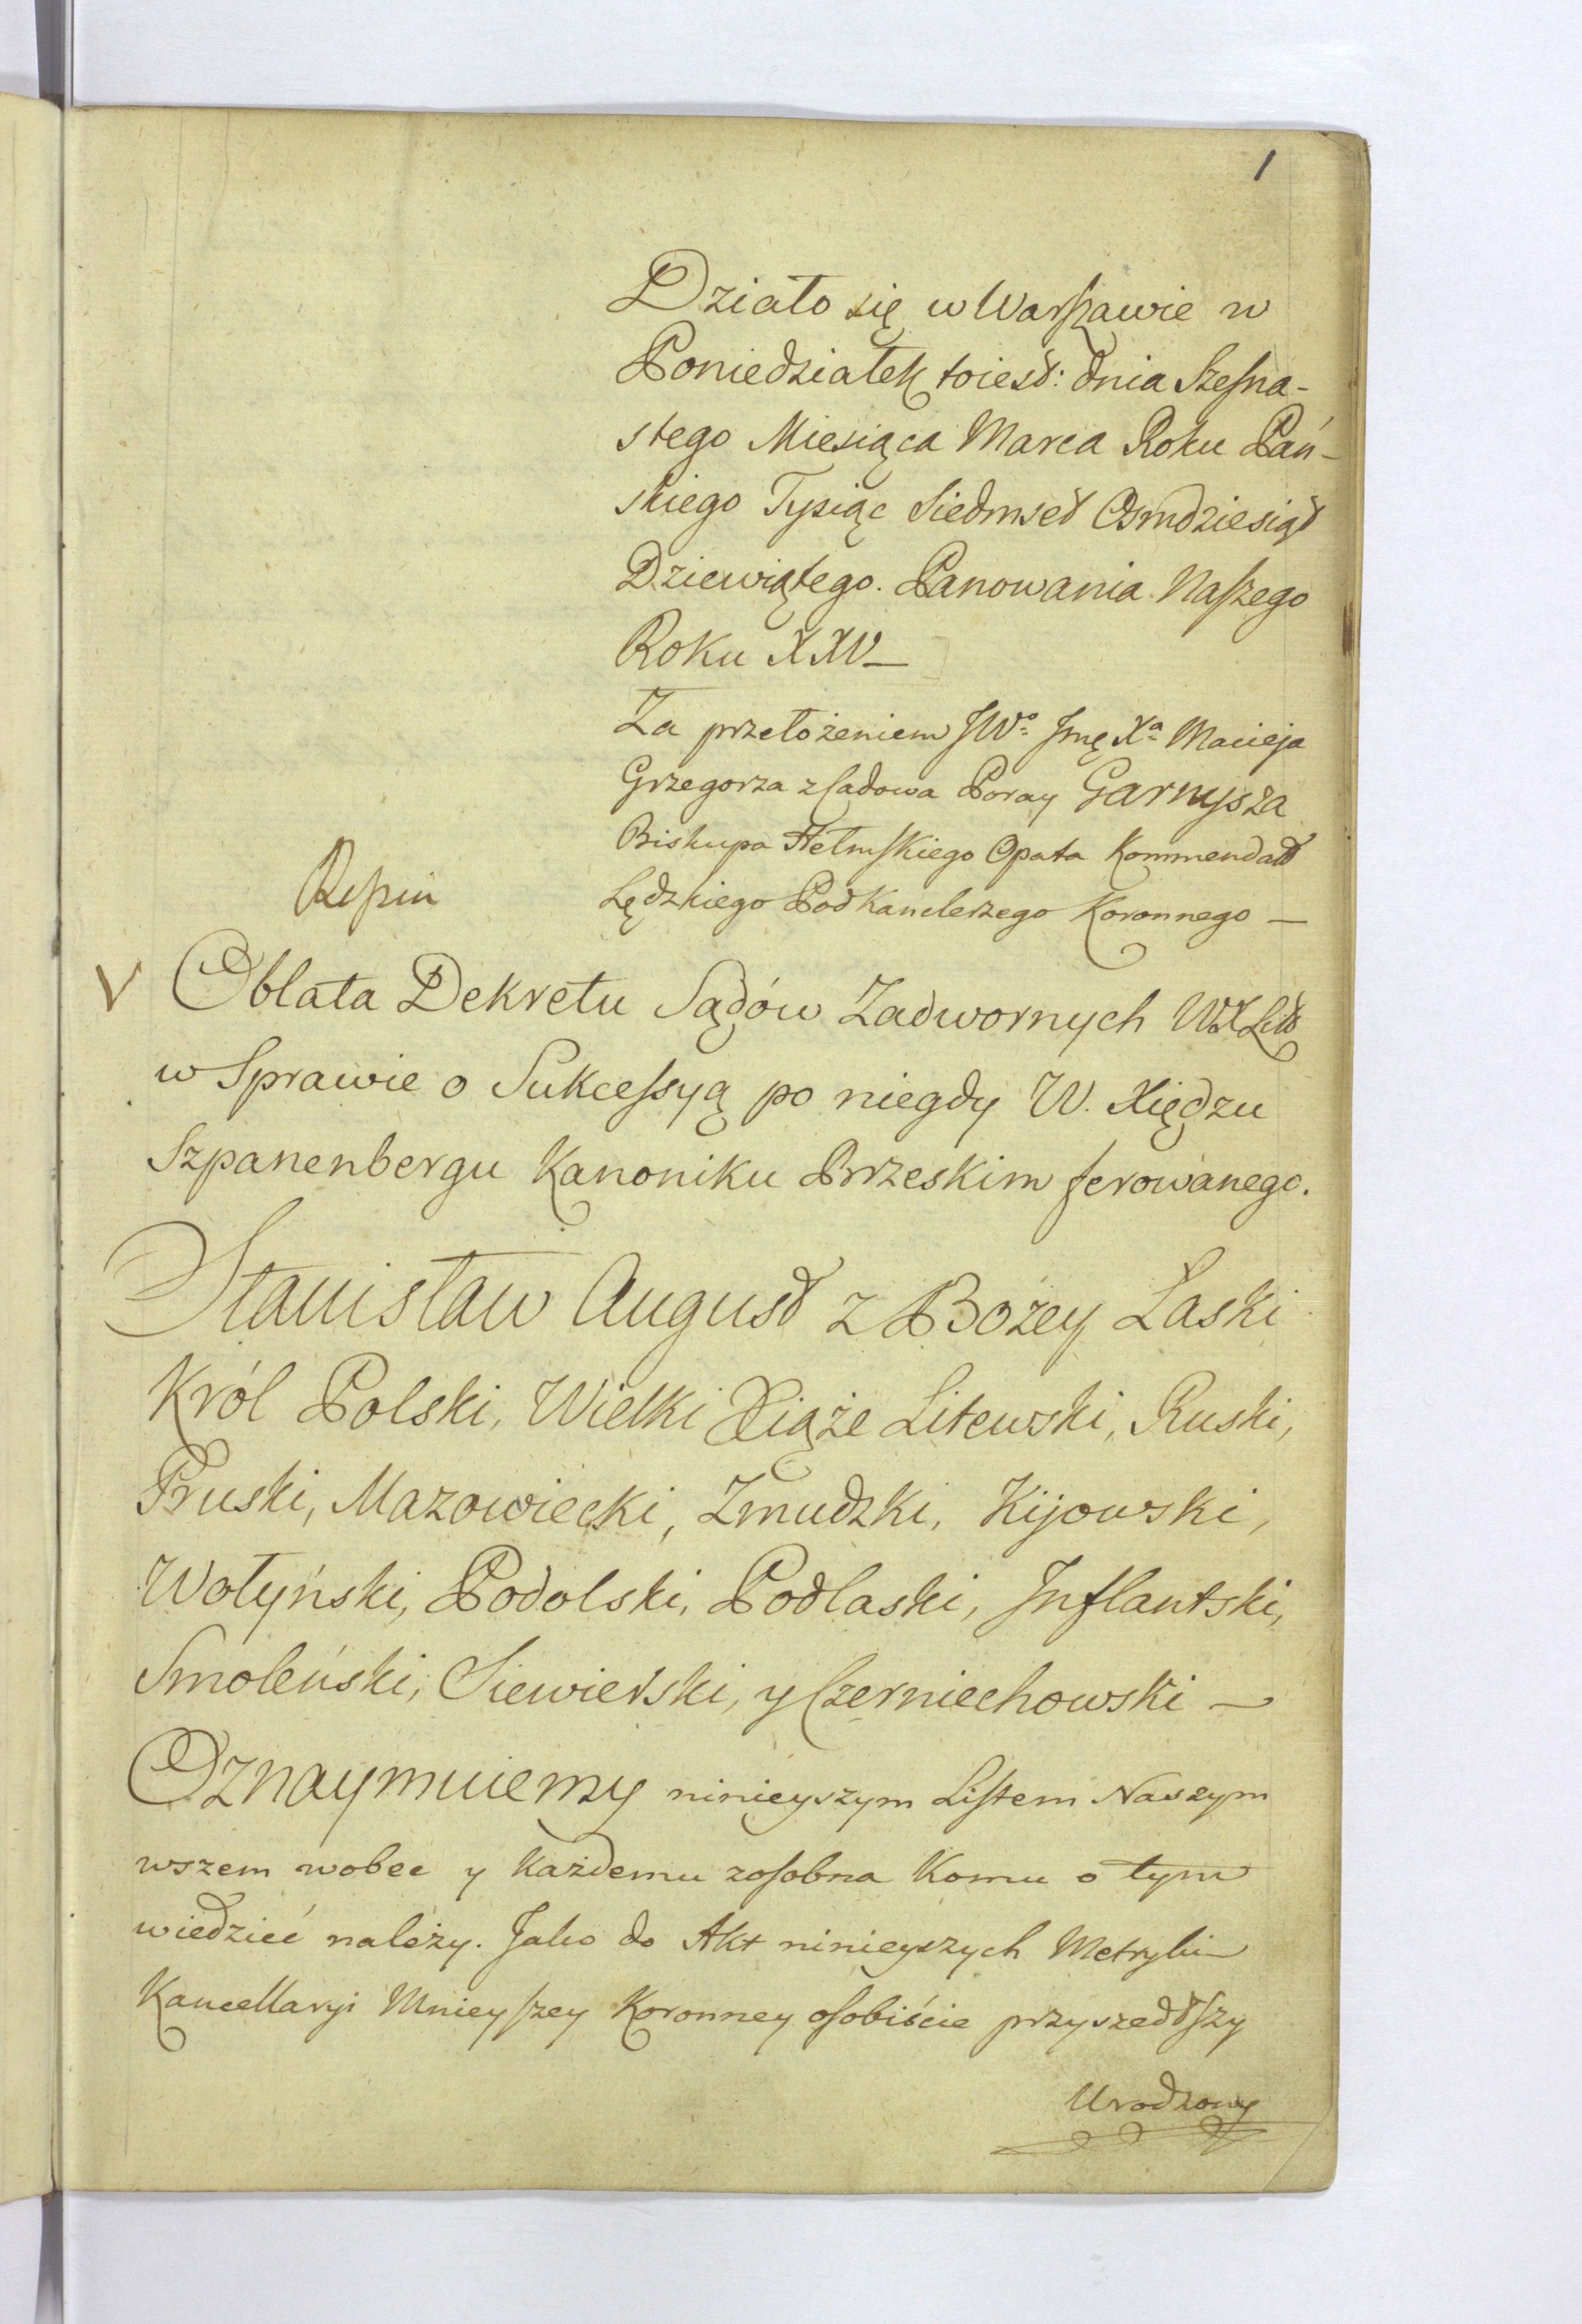 1
Działo się w Warszawie w
Poniedziałek toiest: dnia Szesna-
stego Miesiąca Marca Roku Pań-
skiego Tysiąc Siedmset Osmdziesiąt
Dziewiątego. Panowania Naszego
Roku XXV_
Za przełożeniem JWo Jmę Xa Macieja
Grzegorza z Ladowa Poray Garnysza
Biskupa Hełmskiego Opata Kommendat
Lędzkiego Podkanclerzego Koronnego —
V Oblata Dekretu Sądów Zadwornych WXLitt
w Sprawie o Sukcessyą po niegdy W. Xiędzu
Szpanenbergu Kanoniku Brzeskim ferowanego.
Stanisław August z Bożey Łaski
Król Polski, Wielki Xiąże Litewski, Ruski,
Pruski, Mazowiecki, Zmudzki, Kijowski,
Wołyński, Podolski, Podlaski, Inflantski,
Smoleński, Siewierski, y Czerniechowski —
Oznaymuiemy ninieyszym Listem Naszym
wszem wobec y każdemu zosobna Komu o tym
wiedzieć należy. Jako do Akt ninieyszych Metryki
Kancellaryi Mnieyszey Koronney osobiście przyszedłszy
Urodzony